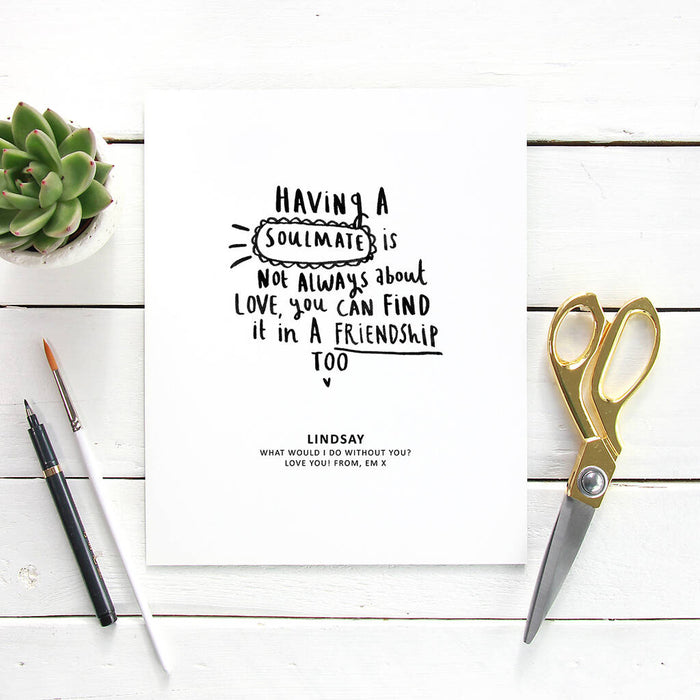 HAVING A
SOULMATE is
Not ALWAYS about
LOVE, you CAN FIND
it in A FRIENDSHIP
TOO
LINDSAY
WHAT WOULD I DO WITHOUT YOU?
LOVE YOU! FROM, EM X